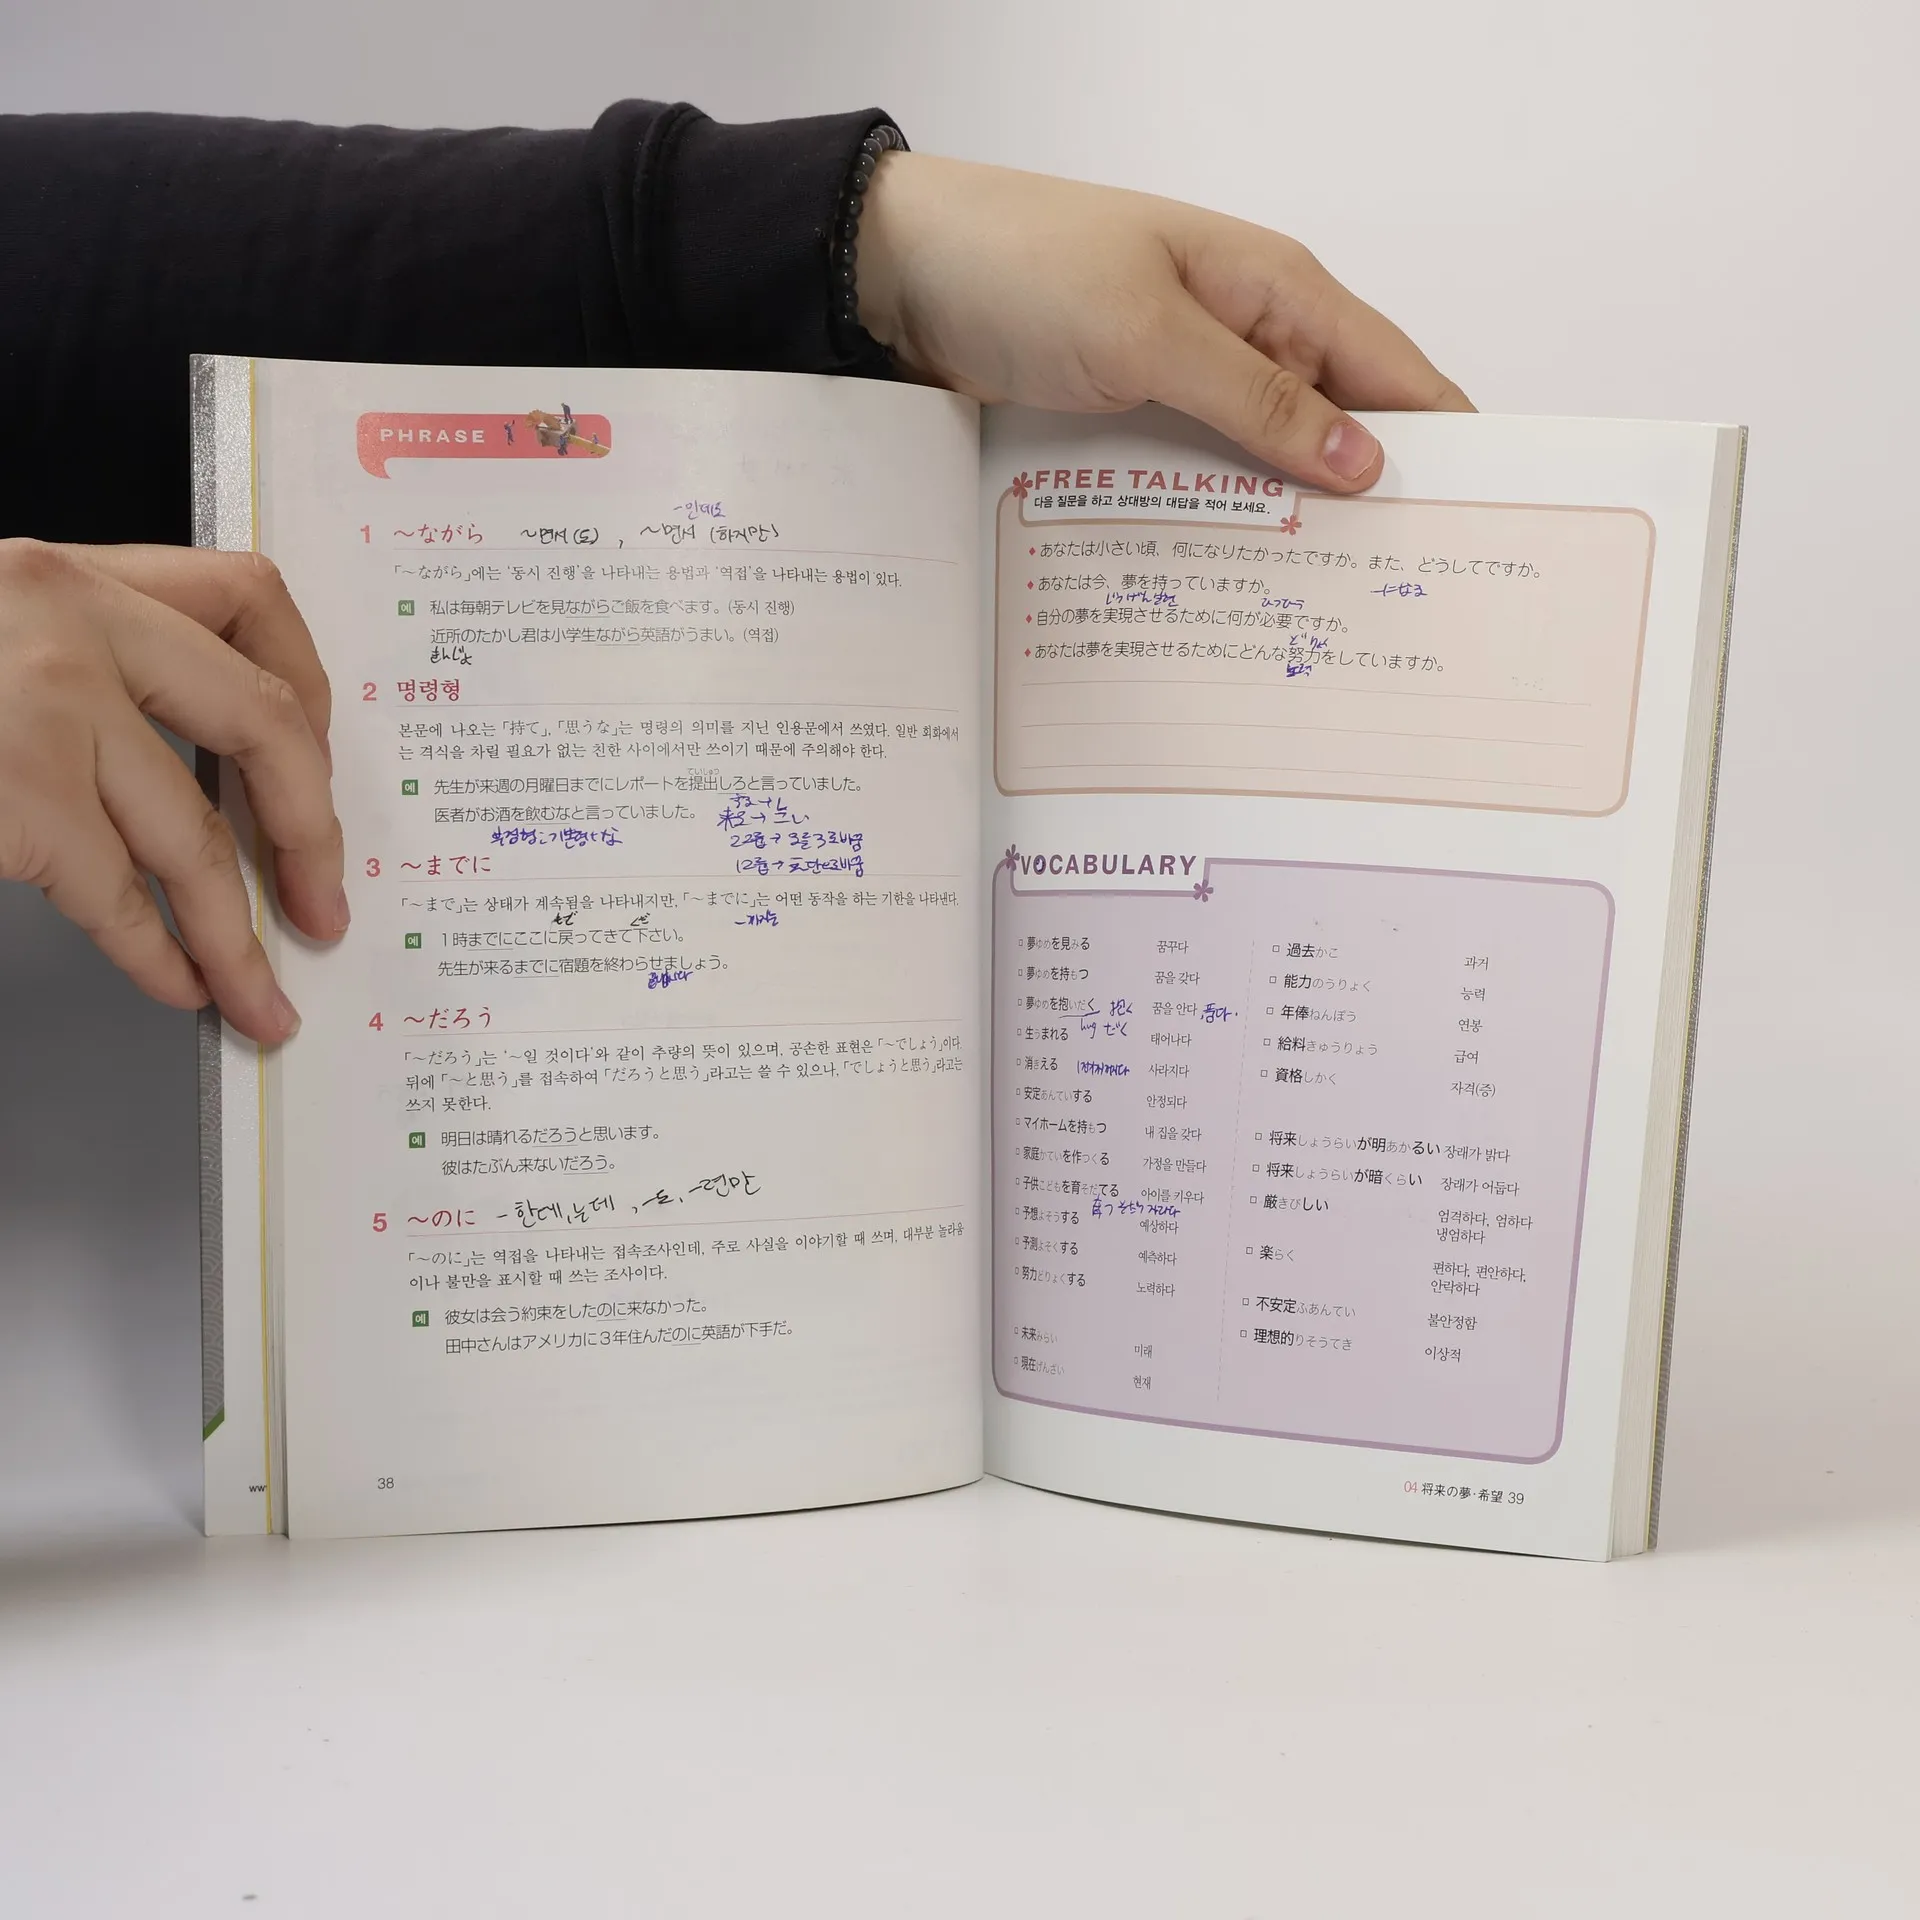 PHRASE
1 ～ながら ～면서(도), ～면서 (하지만)
-인데도
「～ながら」에는 '동시 진행'을 나타내는 용법과 '역접'을 나타내는 용법이 있다.
예 私は毎朝テレビを見ながらご飯を食べます。(동시 진행)
近所のたかし君は小学生ながら英語がうまい。(역접)
きんじょ
2 명령형
본문에 나오는 「持て」, 「思うな」는 명령의 의미를 지닌 인용문에서 쓰였다. 일반 회화에서
는 격식을 차릴 필요가 없는 친한 사이에서만 쓰이기 때문에 주의해야 한다.
ていしゅつ
예 先生が来週の月曜日までにレポートを提出しろと言っていました。
医者がお酒を飲むなと言っていました。
3 ～までに
「～まで」는 상태가 계속됨을 나타내지만, 「～までに」는 어떤 동작을 하는 기한을 나타낸다.
예 1時までにここに戻ってきて下さい。
先生が来るまでに宿題を終わらせましょう。
4 ～だろう
「～だろう」는 '～일 것이다'와 같이 추량의 뜻이 있으며, 공손한 표현은 「～でしょう」이다.
뒤에 「～と思う」를 접속하여 「だろうと思う」라고는 쓸 수 있으나, 「でしょうと思う」라고는
쓰지 못한다.
예 明日は晴れるだろうと思います。
彼はたぶん来ないだろう。
5 ～のに -한데, 는데, -도, -련만
「～のに」는 역접을 나타내는 접속조사인데, 주로 사실을 이야기할 때 쓰며, 대부분 놀라움
이나 불만을 표시할 때 쓰는 조사이다.
예 彼女は会う約束をしたのに来なかった。
田中さんはアメリカに3年住んだのに英語が下手だ。
38
FREE TALKING
다음 질문을 하고 상대방의 대답을 적어 보세요.
あなたは小さい頃、何になりたかったですか。また、どうしてですか。
あなたは今、夢を持っていますか。
-になる
自分の夢を実現させるために何が必要ですか。
あなたは夢を実現させるためにどんな努力をしていますか。
VOCABULARY
夢ゆめを見みる 꿈꾸다
夢ゆめを持もつ 꿈을 갖다
夢ゆめを抱いだく 抱く 꿈을 안다, 품다.
hug だく
生うまれる 태어나다
消きえる 사라지다
安定あんていする 안정되다
マイホームを持もつ 내 집을 갖다
家庭かていを作つくる 가정을 만들다
子供こどもを育そだてる 아이를 키우다
育つ そだつ 자라다
予想よそうする 예상하다
予測よそくする 예측하다
努力どりょくする 노력하다
未来みらい 미래
現在げんざい 현재
過去かこ 과거
能力のうりょく 능력
年俸ねんぽう 연봉
給料きゅうりょう 급여
資格しかく 자격(증)
将来しょうらいが明あかるい 장래가 밝다
将来しょうらいが暗くらい 장래가 어둡다
厳きびしい 엄격하다, 엄하다
냉엄하다
楽らく 편하다, 편안하다,
안락하다
不安定ふあんてい 불안정함
理想的りそうてき 이상적
04 将来の夢·希望 39